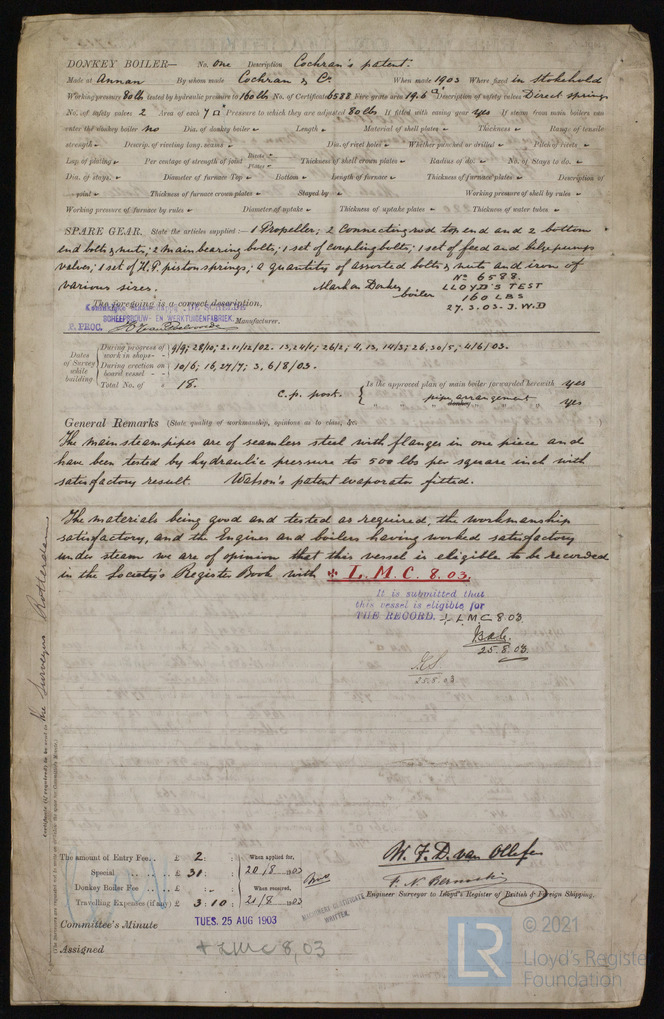 DONKEY BOILER— No. one Description Cochran's patent.
Made at Annan By whom made Cochran & Co. When made 1903 Where fixed in stokehold
Working pressure 80 lb tested by hydraulic pressure to 160 lbs No. of Certificate 6588 Fire grate area 19.6 Description of safety valves Direct spring
No. of safety valves 2 Area of each 7 □" Pressure to which they are adjusted 80 lbs If fitted with easing gear yes If steam from main boilers can
enter the donkey boiler no Dia. of donkey boiler Length Material of shell plates Thickness Range of tensile
strength Descrip. of riveting long. seams Dia. of rivet holes Whether punched or drilled Pitch of rivets
Lap of plating Per centage of strength of joint Rivets Plates Thickness of shell crown plates Radius of do. No. of Stays to do.
Dia. of stays. Diameter of furnace Top Bottom Length of furnace Thickness of furnace plates Description of
joint Thickness of furnace crown plates Stayed by Working pressure of shell by rules
Working pressure of furnace by rules Diameter of uptake Thickness of uptake plates Thickness of water tubes
SPARE GEAR. State the articles supplied:— 1 Propeller; 2 Connecting rod top end and 2 bottom
end bolts & nuts; 2 main bearing bolts; 1 set of coupling bolts; 1 set of feed and bilge pumps
valves; 1 set of H.P. piston springs; a quantity of assorted bolts & nuts and iron of
various sizes. Mark on Donkey boiler
No 6588.
LLOYD'S TEST
160 LBS
27.3.03. J.W.D
The foregoing is a correct description,
SCHEEPSBOUW- EN WERKTUIGENFABRIEK.
P. PROC. Manufacturer.
Dates of Survey while building
During progress of work in shops- - 9/9; 28/10; 2. 11/12/02. 13, 24/1; 26/2; 4, 13, 14/3; 26, 30/5; 4/6/03.
During erection on board vessel - - 10/6; 16, 27/7; 3, 6/8/03.
Total No. of 18.
Is the approved plan of main boiler forwarded herewith yes
c.p. post. " " " donkey pipe arrangement " " yes
General Remarks (State quality of workmanship, opinions as to class, &c.
The main steam pipes are of seamless steel with flanges in one piece and
have been tested by hydraulic pressure to 500 lbs per square inch with
satisfactory result. Watson's patent evaporator fitted.
The materials being good and tested as required, the workmanship
satisfactory, and the Engines and boilers having worked satisfactory
under steam we are of opinion that this vessel is eligible to be recorded
in the Society's Register Book with ✠ L.M.C. 8.03.
It is submitted that
this vessel is eligible for
THE RECORD. + LMC 8.03
25.8.03
25.8.03
The Surveyors Rotterdam
The amount of Entry Fee.. £ 2 : When applied for,
Special .. .. £ 31 : 20/8 1903
Donkey Boiler Fee .. £ : When received,
Travelling Expenses (if any) £ 3 : 10 : 21/8 1903
MACHINERY CERTIFICATE
WRITTEN.
W. F. D. van Ollefen
Engineer Surveyor to Lloyd's Register of British & Foreign Shipping.
Committee's Minute TUES. 25 AUG 1903
Assigned + LMC 8,03
LR
© 2021
Lloyd's Register
Foundation